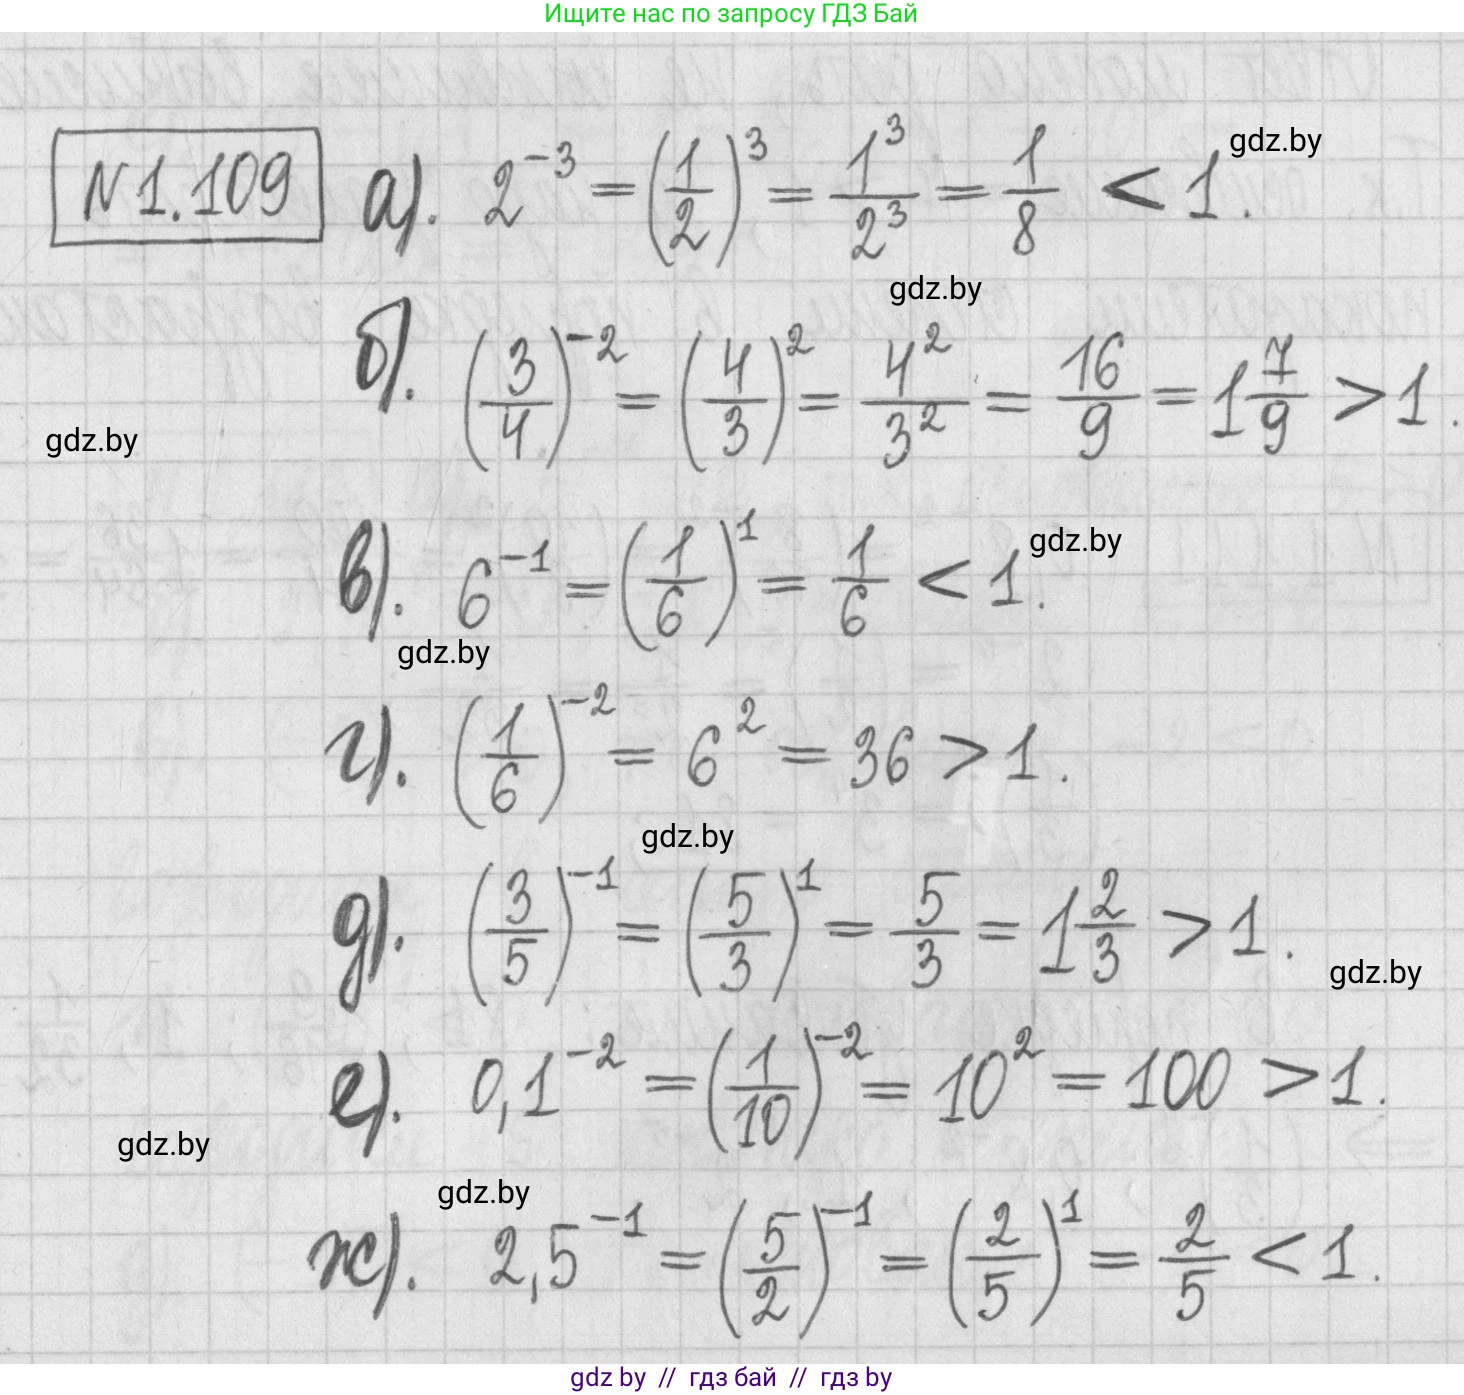 Ищите нас по запросу ГДЗ Бай
N1.109 а). 2^{-3} = (1/2)^3 = 1^3/2^3 = 1/8 < 1.
gdz.by
gdz.by
б). (3/4)^{-2} = (4/3)^2 = 4^2/3^2 = 16/9 = 1 7/9 > 1.
gdz.by
в). 6^{-1} = (1/6)^1 = 1/6 < 1.
gdz.by
gdz.by
г). (1/6)^{-2} = 6^2 = 36 > 1.
gdz.by
д). (3/5)^{-1} = (5/3)^1 = 5/3 = 1 2/3 > 1.
gdz.by
е). 0,1^{-2} = (1/10)^{-2} = 10^2 = 100 > 1.
gdz.by
gdz.by
ж). 2,5^{-1} = (5/2)^{-1} = (2/5)^1 = 2/5 < 1.
gdz by // гдз бай // гдз by